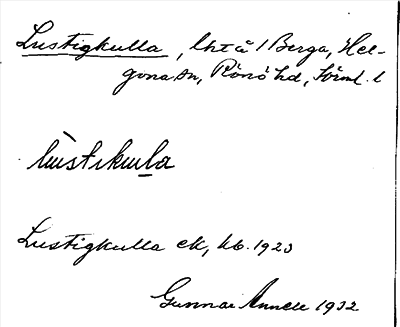 Lustigkulla, lht å / Berga, Hel-
gona sn, Rönö hd, Söml. l
Lustigkulla ek, kb. 1923
Gunnar 1932